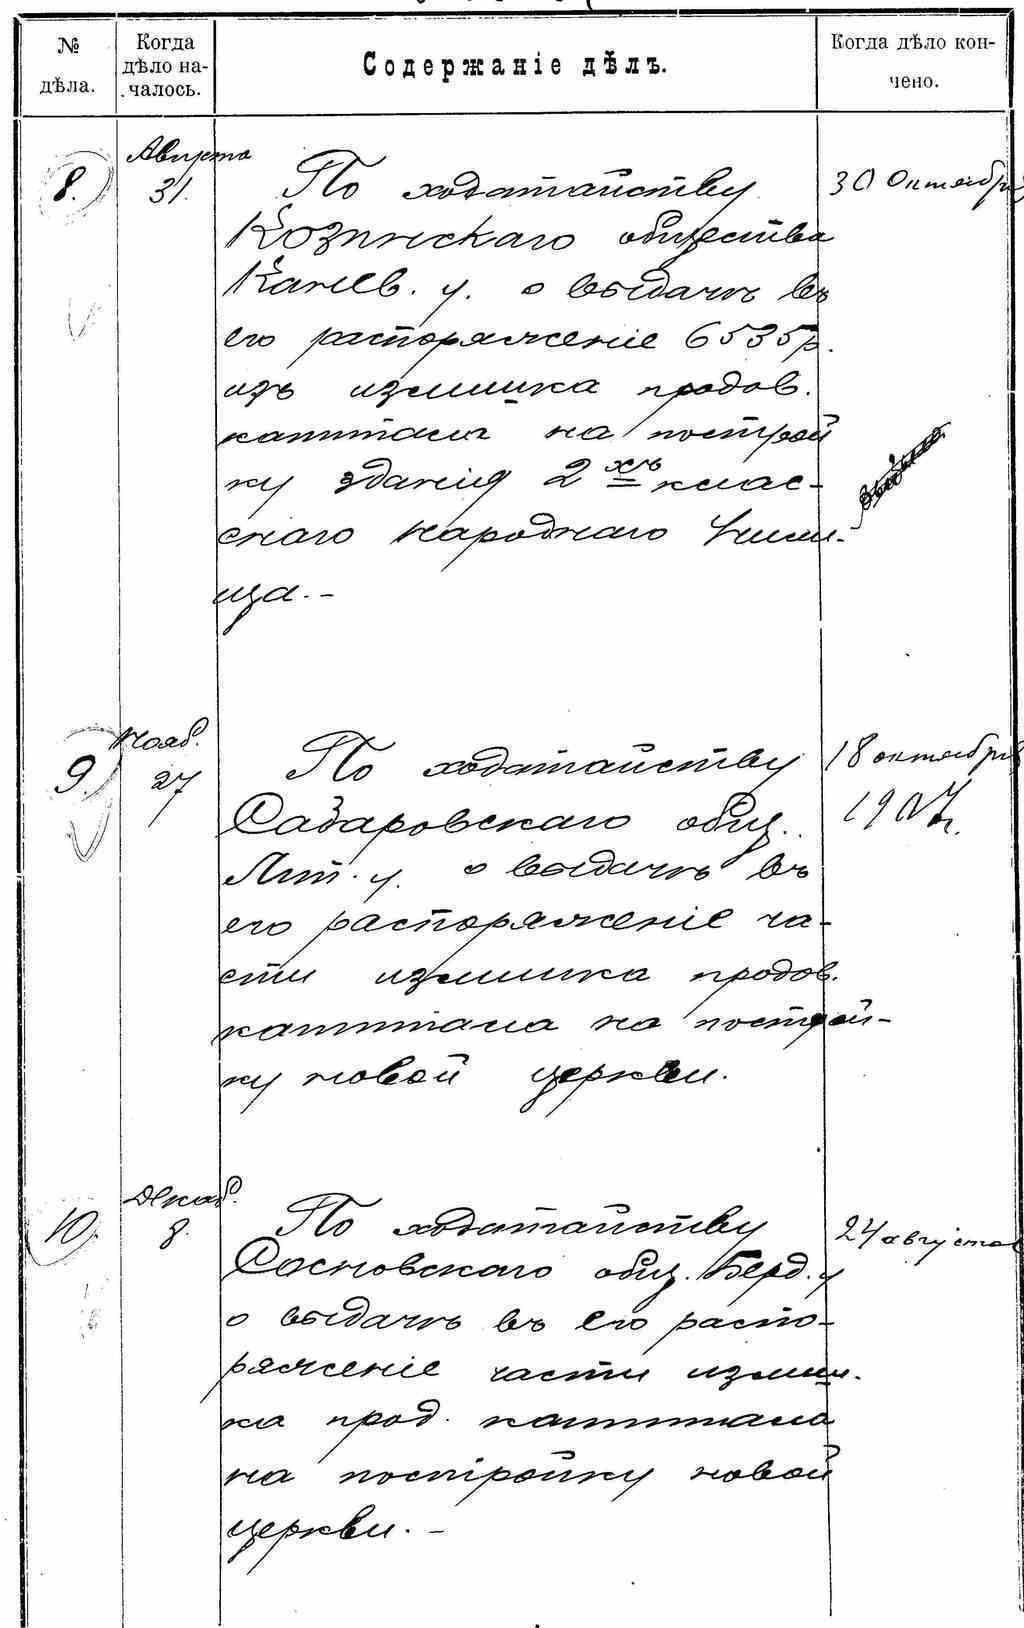 №
дѣла.
Когда
дѣло на-
чалось.
Содержаніе дѣлъ.
Когда дѣло кон-
чено.
8.
Августа
31.
По ходатайству
Козинскаго общества
Канев. у. о выдачѣ въ
его распоряженіе 6535р.
изъ излишка продов.
капитала на построй
ку зданія 2хъ клас-
снаго народнаго Учили-
ща.-
30 Октября
9.
Нояб.
27
По ходатайству
общ.
Лип. у. о выдачѣ въ
его распоряженіе ча-
сти излишка продов.
капитала на построй-
ку новой церкви.
18 октября
1907г.
10.
Декаб.
8.
По ходатайству
Сосновскаго общ. Берд. у
о выдачѣ въ его распо-
ряженіе части излиш-
ка прод. капитала
на постройку новой
церкви.-
24 августа